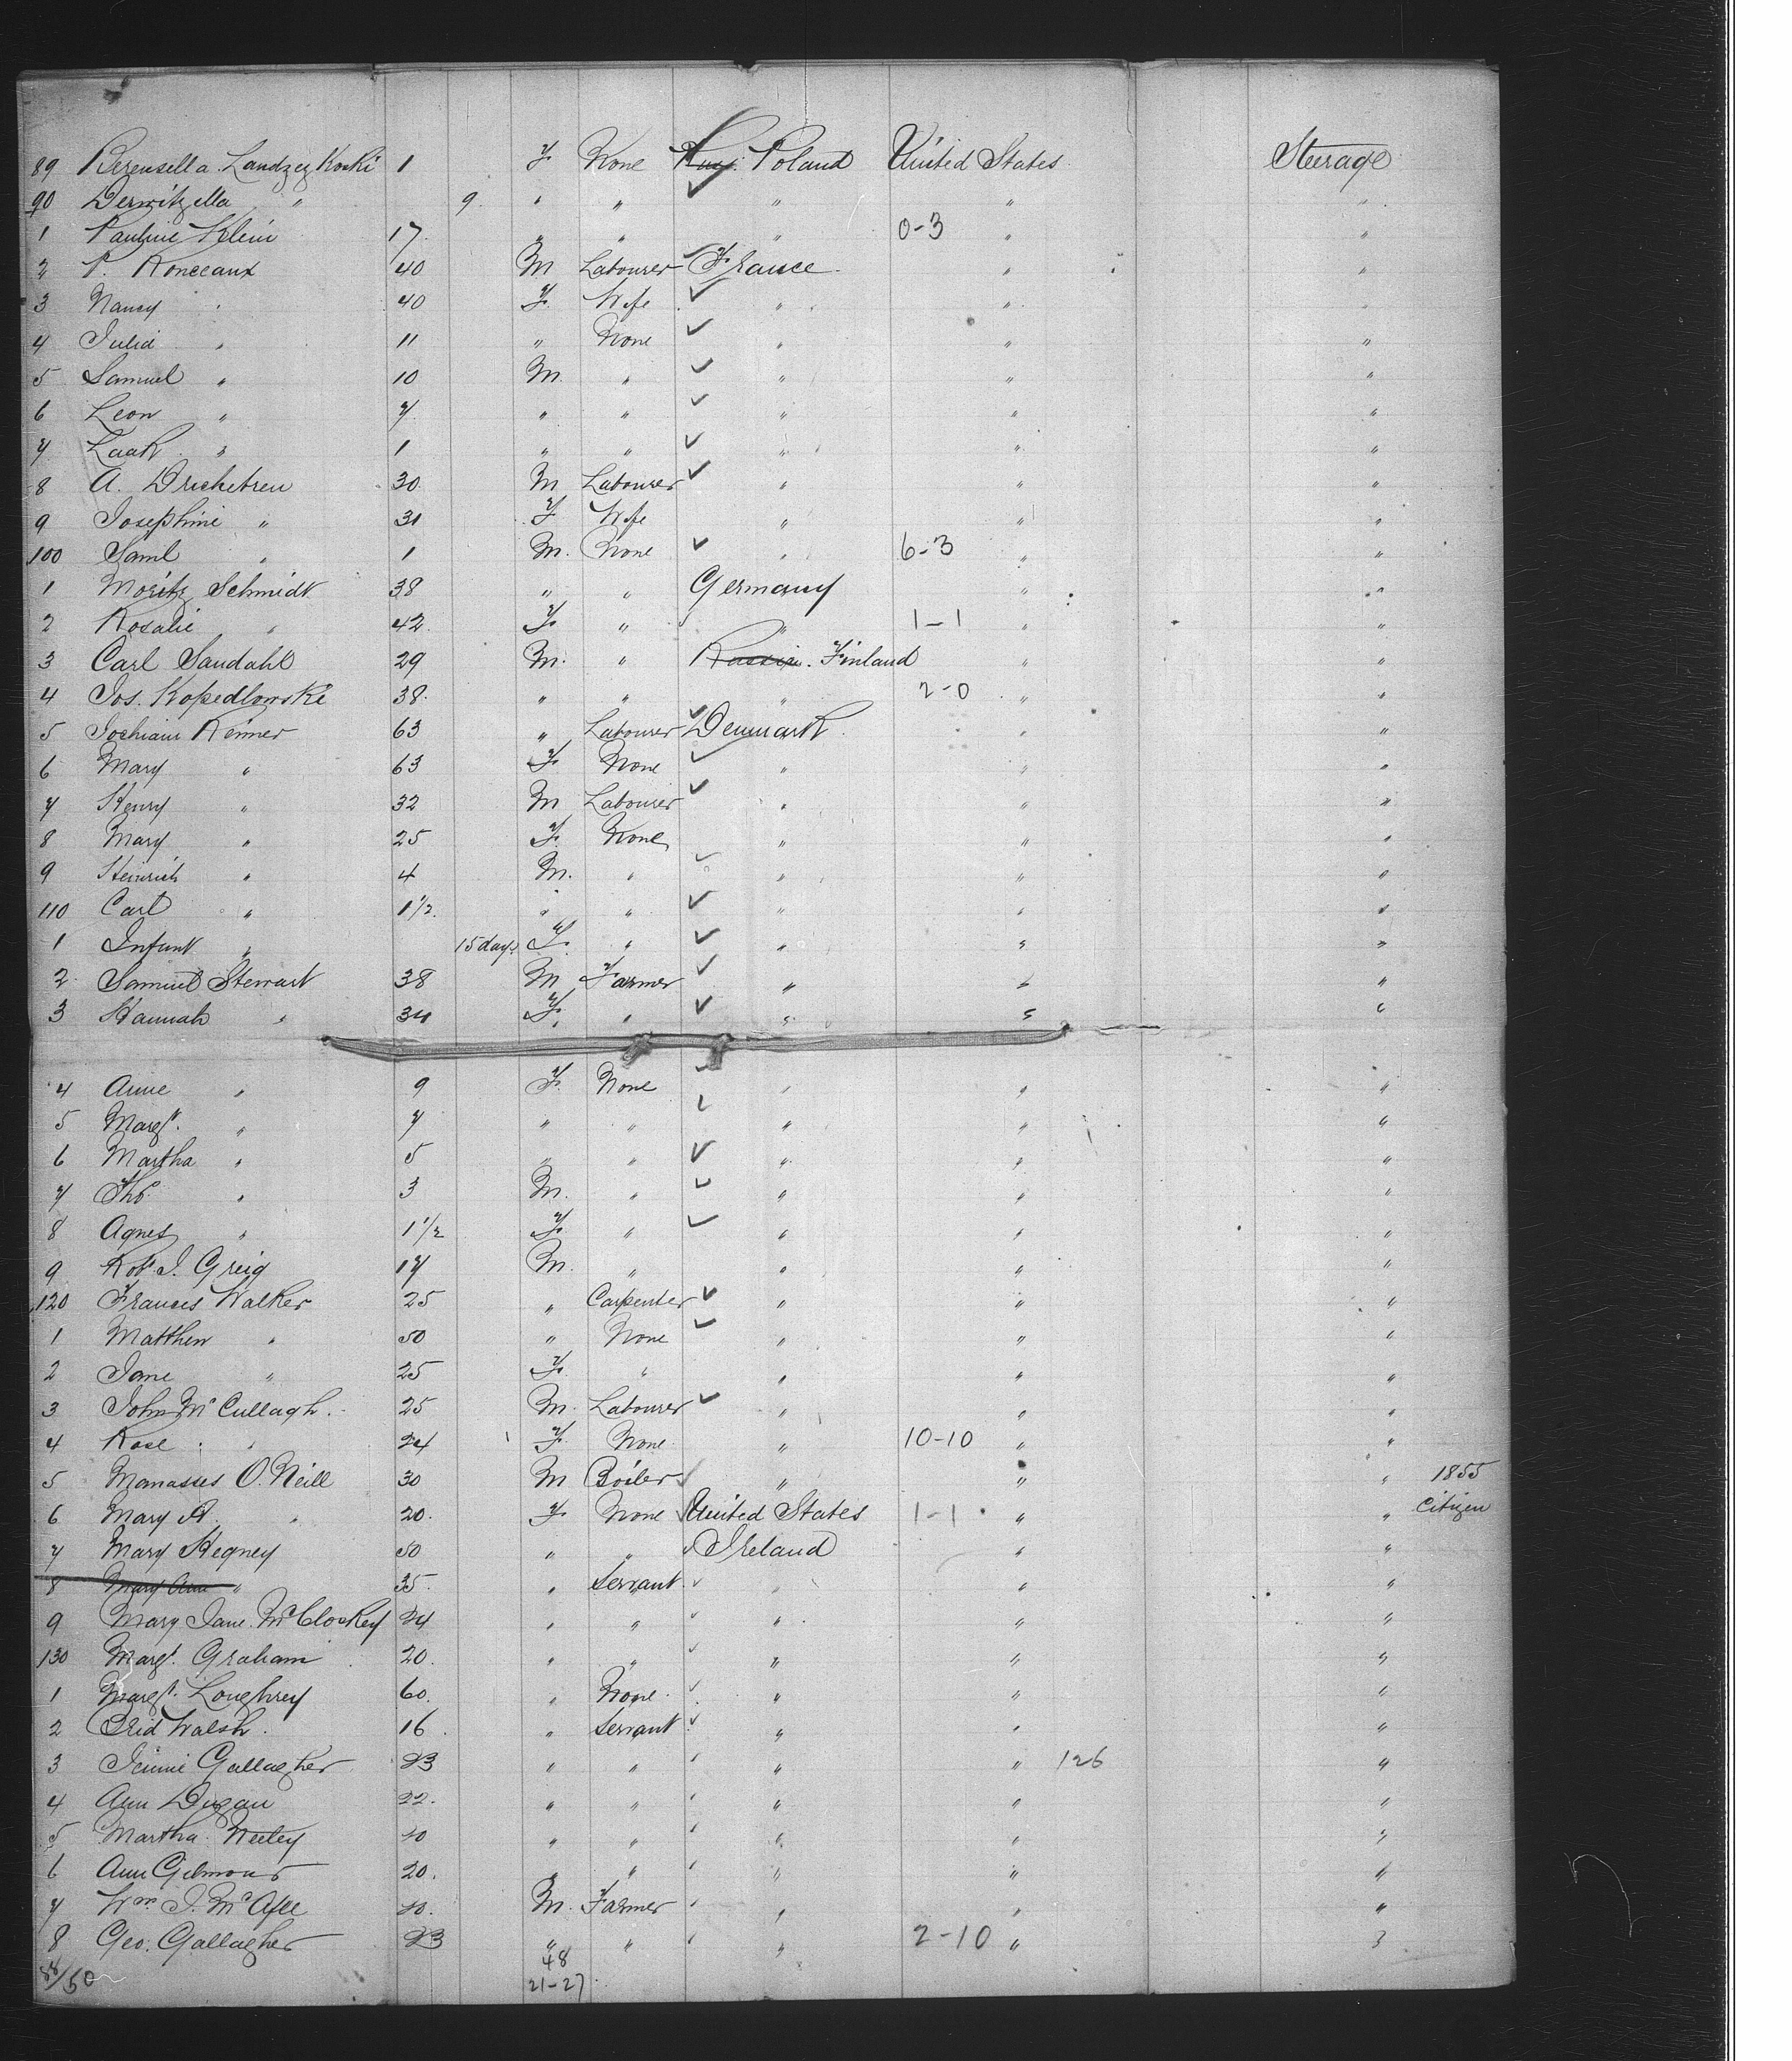 89 Landzez Koski 1 F None Poland United States Steerage
90 " 9 " " " " "
1 Pauline Klein 17. " " " 0-3 " "
2 P. Ronceaux 40 M Labourer France " "
3 Nancy " 40 F Wife " " "
4 Julia " 11 " None " " "
5 Samuel " 10 M. " " " "
6 Leon " 7 " " " " "
7 " 1 " " " " "
8 A. 30 M Labourer " " "
9 Josephine " 31 F Wife " " "
100 Saml " 1 M. None " 6-3 " "
1 Moritz Schmidt 38 " " Germany " "
2 Rosalie " 42 F " " 1-1 " "
3 Carl Sandahl 29 M. " Russia. Finland " "
4 Jos. Kopedlowski 38. " " " 2-0 " "
5 Jochiam Renner 63 " Labourer Denmark " "
6 Mary " 63 F None " " "
7 Henry " 32 M Labourer " " "
8 Mary " 25 F. None " " "
9 Heinrich " 4 M. " " " "
110 Carl " 1 1/2. " " " " "
1 Infant " 15 days F. " " " "
2 Samuel Stewart 38 M Farmer " " "
3 Hannah " 34 F. " " " "
4 Anne " 9 F. None " " "
5 Margt. " 7 " " " " "
6 Martha " 5 " " " " "
7 Thos " 3 M. " " " "
8 Agnes " 1 1/2 F. " " " "
9 Robt. J. Greig 17 M. " " " "
120 Frances Walker 25 " Carpenter " " "
1 Matthew " 50 " None " " "
2 Jane " 25 F. " " " "
3 John McCullagh. 25 M. Labourer " " "
4 Rose " 24 F. None " 10-10 " "
5 Manasses O'Neill 30 M Boiler " " " 1855
6 Mary A. " 20. F None United States 1-1 " " Citizen
7 Mary Hegney 50 " " Ireland " "
8 Mary Ann " 35. " Servant " " "
9 Mary Jane McCloskey 24 " " " " "
130 Margt. Graham 20. " " " " "
1 Margt. Loughrey 60. " None " " "
2 Brid Walsh. 16. " Servant " " "
3 Jennie Gallagher 23 " " " " 126 "
4 Ann Dugan 22. " " " " "
5 Martha Neeley " " " " "
6 Ann Gilmour 20. " " " " "
7 Wm. J. McAfee M. Farmer " " "
8 Geo. Gallagher 23 " " " 2-10 " "
88/50 48
21-27